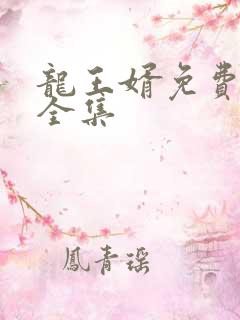 龍王婿免費
全集
鳳青瑶